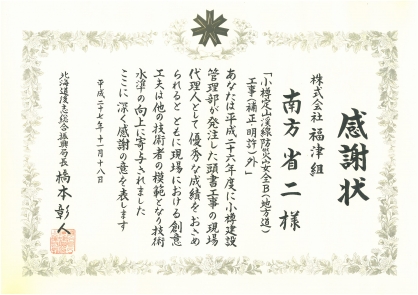 感謝状
株式会社 福津組
南方省二様
「小樽定山溪線防災・安全B(地方道)
工事(補正・明許)外」
あなたは平成二十六年度に小樽建設
管理部が発注した頭書工事の現場
代理人として優秀な成績をおさめ
られるとともに現場における創意
工夫は他の技術者の模範となり技術
水準の向上に寄与されました
ここに深く感謝の意を表します
平成二十七年十一月十八日
北海道後志総合振興局長 橋本彰人